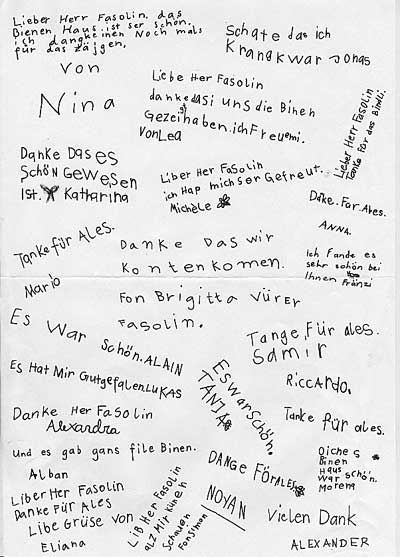 Lieber Herr Fasolin, das
Bienen Haus ist ser schön.
ich dangkeinen Noch mals
für das zäjgen.
von
Nina
Schate das ich
Krangkwar Jonas
Liebe Her Fasolin
danke dasi uns die Binen
Gezeigt haben. ich Freuemi.
Von Lea
Lieber Herr Fasolin
Tanke Für das Bindli.
Danke Das es
Schön Gewesen
Ist. Katharina
Liber Her Fasolin
ich Hap michser Gefreut.
Michèle
Dake. Far. Ales.
ANNA.
Tanke für Ales.
Mario
Danke Das wir
Kontenkomen.
Fon Brigitta Vürer
Fasolin.
Ich Fande es
sehr schön bei
Ihnen Fränzi
Es War
Schön. ALAIN
Tange Für ales.
Samir
Es Hat Mir Gutgefalen. LUKAS
ES War Schön.
TANJA
Riccardo.
Danke Her Fasolin
Alexandra
Tanke für ales.
und es gab gans file Binen.
Alban
DANGE FÖR ALES
NOYAN
Binen
Haus
war schön.
Liber Her Fasolin
Danke Für Ales
Libe Grüse von
Eliana
Lib Her Fasolin
Schauen
Fon Simon
Vielen Dank
ALEXANDER